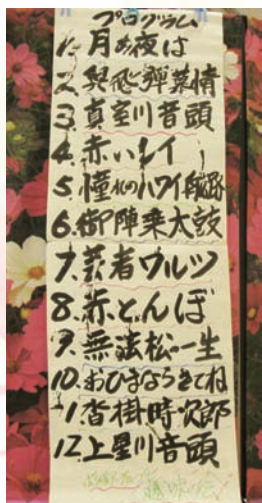 プログラム
1. 月の夜は
2. 與飛弾慕情
3. 真室川音頭
4. 赤いレイ
5. 憧れのハワイ航路
6. 御陣乗太鼓
7. 若者ワルツ
8. 赤とんぼ
9. 無法松一生
10. おひまならきてね
11. 沓掛時次郎
12. 上星川音頭